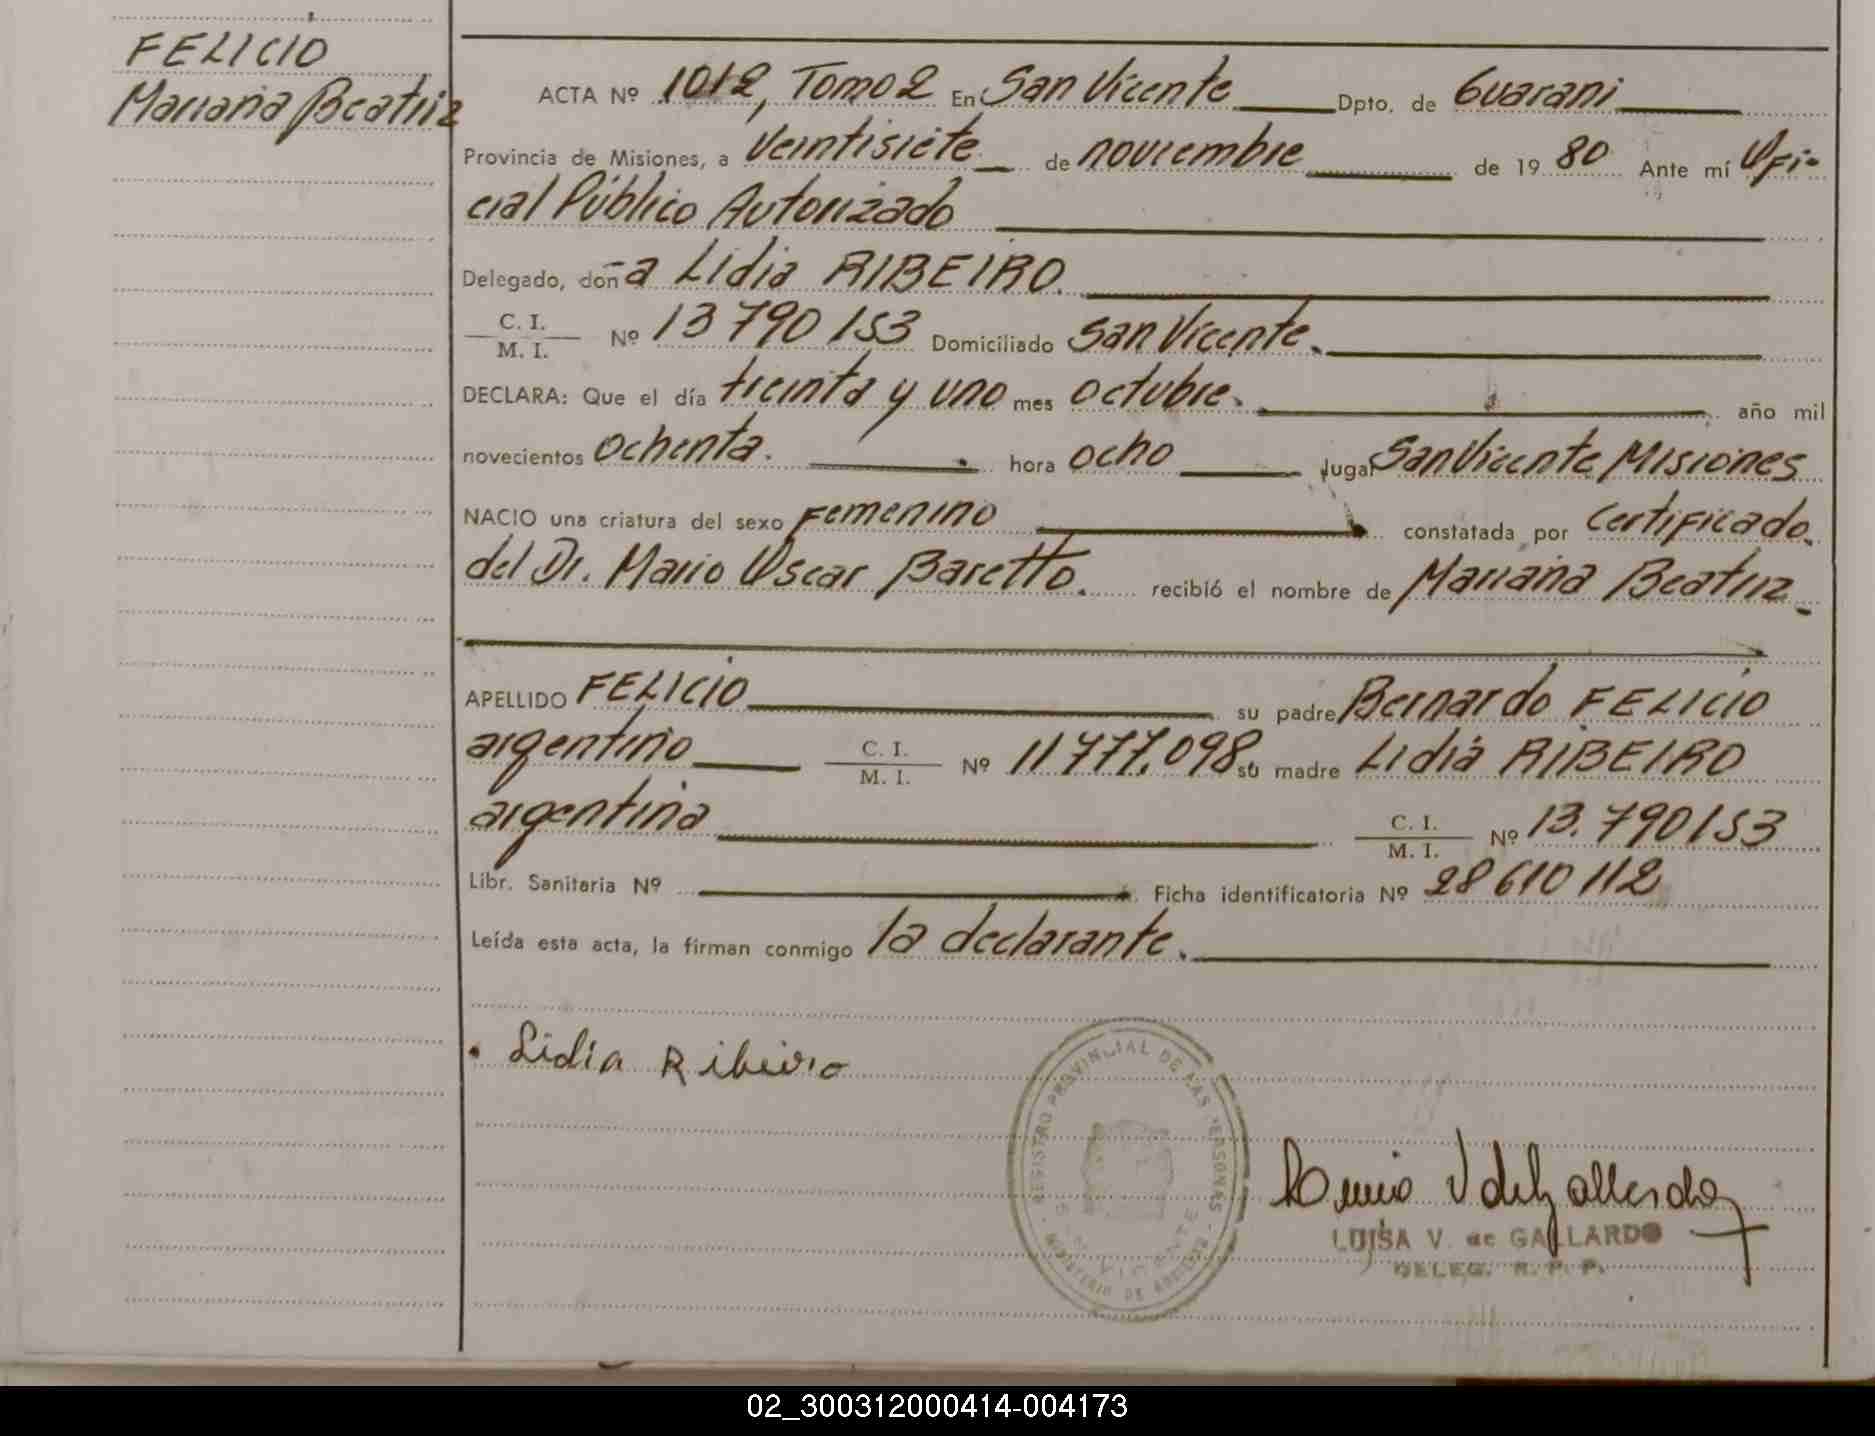 FELICIO
Mariana Beatriz
ACTA Nº 1012, Tomo 2 En San Vicente Dpto. de Guarani
Provincia de Misiones, a Veintisiete de noviembre de 1980 Ante mí Ofi-
cial Público Autorizado
Delegado, don-a Lidia RIBEIRO.
C. I.
M. I. Nº 13 790 153 Domiciliado San Vicente.
DECLARA: Que el día treinta y uno mes octubre. año mil
novecientos ochenta. hora ocho lugar San Vicente Misiones
NACIO una criatura del sexo Femenino constatada por Certificado
del Dr. Mario Oscar Baretto. recibió el nombre de Mariana Beatriz.
APELLIDO FELICIO su padre Bernardo FELICIO
argentino C. I.
M. I. Nº 11777.098 su madre Lidia RIBEIRO
argentina C. I.
M. I. Nº 13.790153
Libr. Sanitaria Nº Ficha identificatoria Nº 28610112
Leída esta acta, la firman conmigo la declarante.
Lidia Ribeiro
REGISTRO PROVINCIAL DE LAS PERSONAS
SAN VICENTE
LUISA V. de GALLARDO
DELEG. R. P. P.
02_300312000414-004173